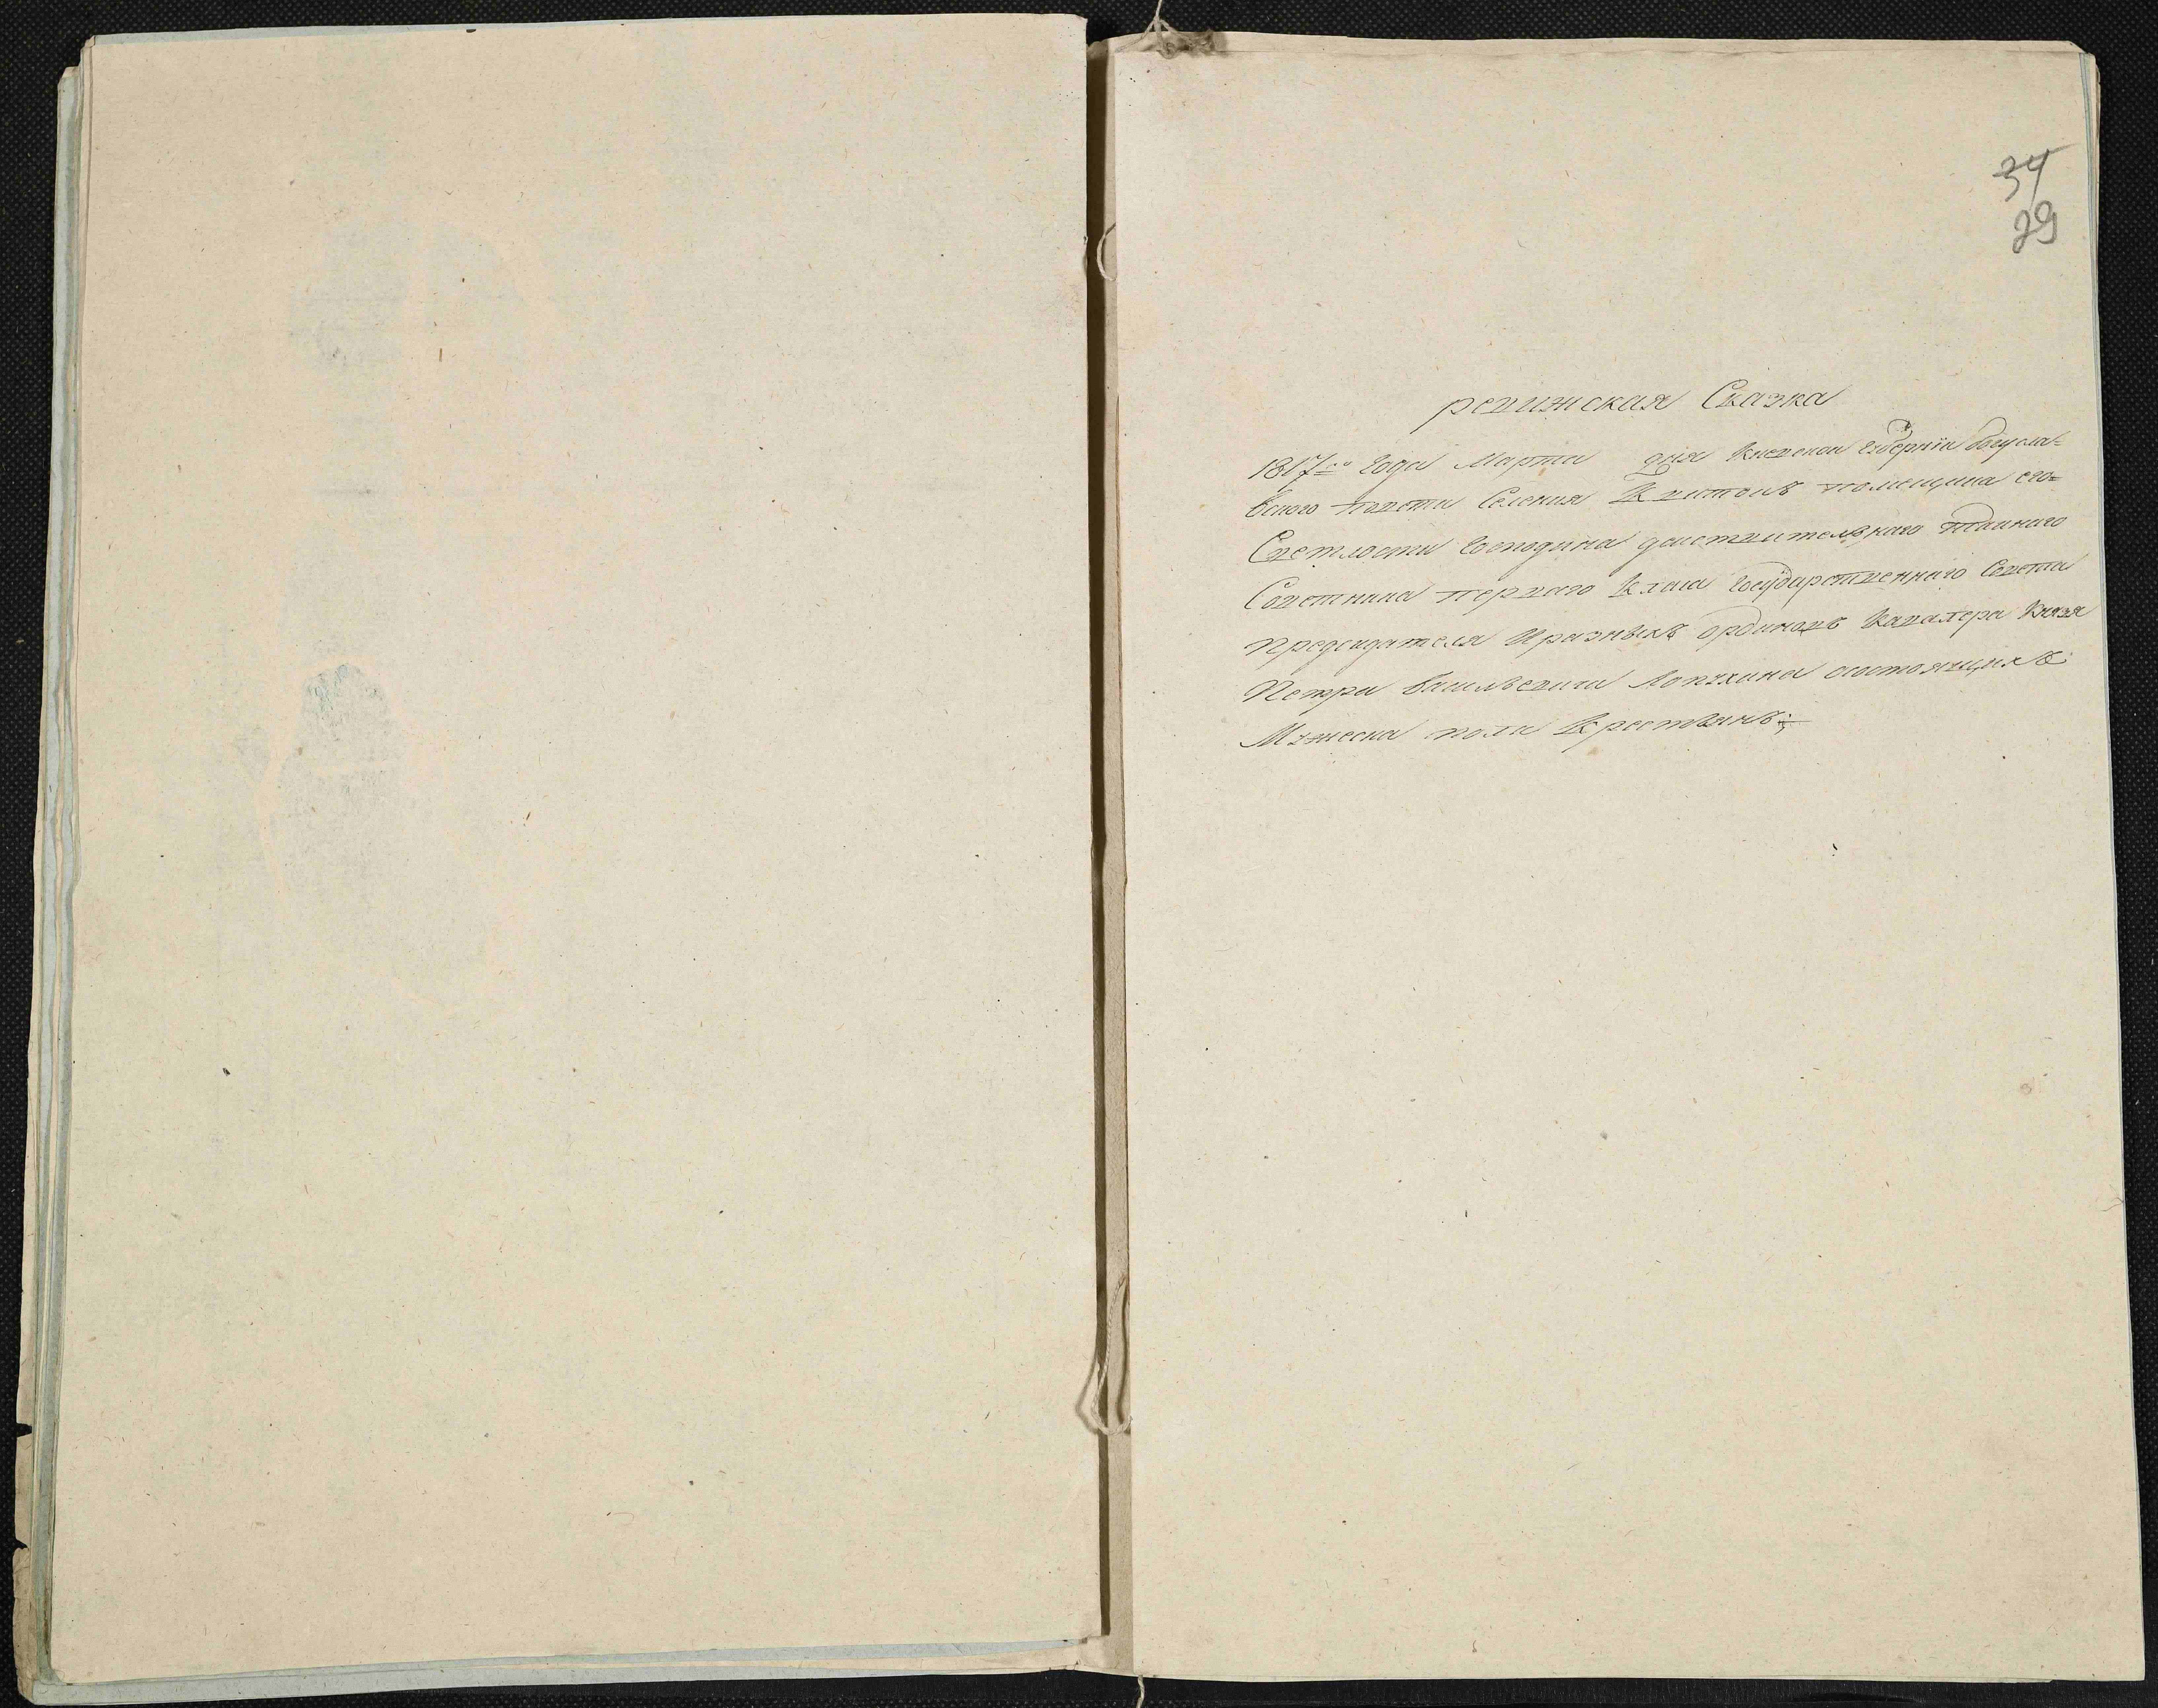 34
29
ревижская Сказка
1817го Года Марта дня Киевской Губернїи Богусла=
вского Повета Селения Квитокъ помещика его=
Светлости Господина действительнаго тайнаго
Советника перваго Класа Государственнаго Совета
Председателя Иразныхъ ординовъ Кавалера Князя
Петра Васильевича Лопухина состоящихъ
Мужеска пола Крестьянъ